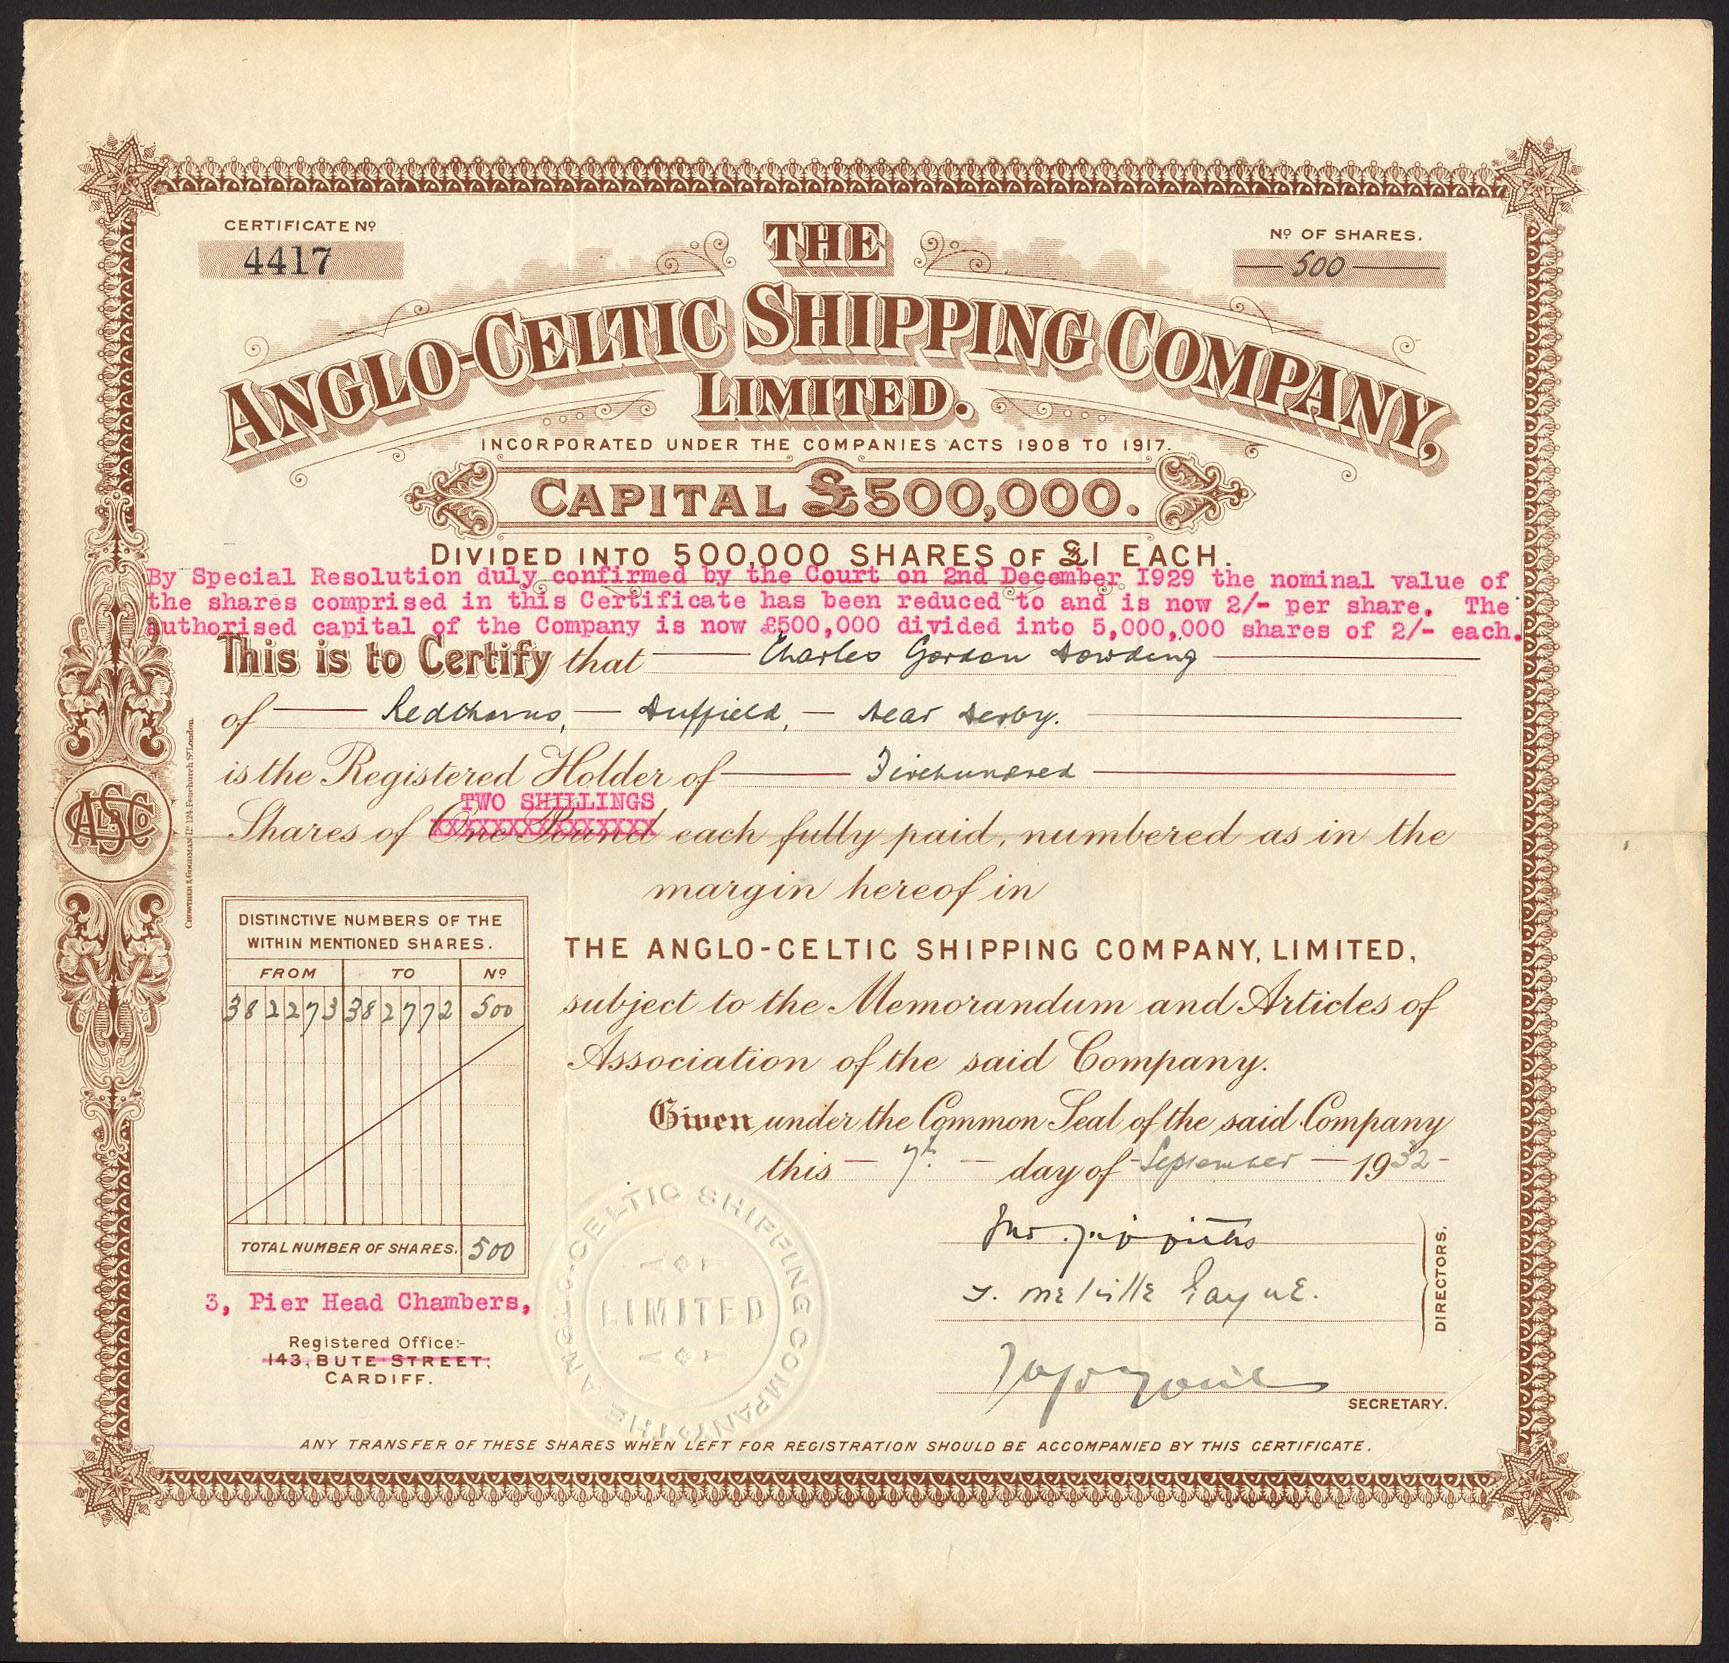 CERTIFICATE Nº
4417
Nº OF SHARES.
500
THE
ANGLO-CELTIC SHIPPING COMPANY,
LIMITED.
INCORPORATED UNDER THE COMPANIES ACTS 1908 TO 1917.
CAPITAL £500,000.
DIVIDED INTO 500,000 SHARES OF £1 EACH.
By Special Resolution duly confirmed by the Court on 2nd December 1929 the nominal value of
the shares comprised in this Certificate has been reduced to and is now 2/- per share. The
authorised capital of the Company is now £500,000 divided into 5,000,000 shares of 2/- each.
This is to Certify that Charles Gordon Dowding
of Redthorns, Duffield, Near Derby.
is the Registered Holder of Fivehundred
TWO SHILLINGS
Shares of One Pound each fully paid, numbered as in the
margin hereof in
THE ANGLO-CELTIC SHIPPING COMPANY, LIMITED,
subject to the Memorandum and Articles of
Association of the said Company.
Given under the Common Seal of the said Company
this 7th. day of September 1932
DISTINCTIVE NUMBERS OF THE
WITHIN MENTIONED SHARES.
FROM TO Nº
382273 382772 500
TOTAL NUMBER OF SHARES. 500
3, Pier Head Chambers,
Registered Office:-
143, BUTE STREET,
CARDIFF.
THE ANGLO-CELTIC SHIPPING COMPANY
LIMITED
Jno. Griffiths
DIRECTORS.
SECRETARY.
ANY TRANSFER OF THESE SHARES WHEN LEFT FOR REGISTRATION SHOULD BE ACCOMPANIED BY THIS CERTIFICATE.